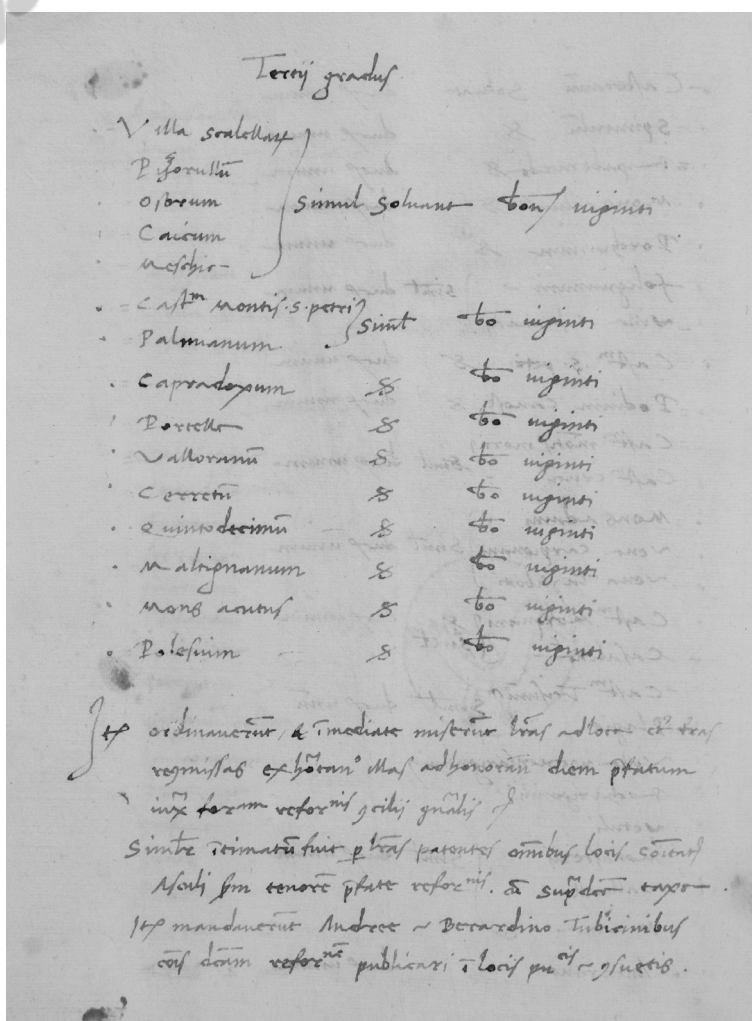 Tertij gradus
Villa scalellar
Pigorullū
Osorum
Caicum
Meschie
Simul Soluant bon viginti
Castm Montis . S . petri
Palmianum
Siml bo viginti
Capradoxum & bo viginti
Porcelle & bo viginti
Valloranū & bo viginti
Cerretū & bo viginti
Quintodecimū & bo viginti
Maltignanum & bo viginti
Mons acutus & bo viginti
Polesium & bo viginti
Itē ordinaverūt & īmediate miserūt lrās ad loca tras
remissas exhortan° illas ad honoran diem pfatum
iux formam refornis 9cilii gnālis
Simlr ītimatū fuit p lrās patentes omībus locis Cōitat
Asculi scdm tenorē pfate refornis . cū supdcē taxe .
Itē mandaverūt Andree Berardino Tubicinibus
cōis dcām refornē publicari ī locis pucis 9suetis .